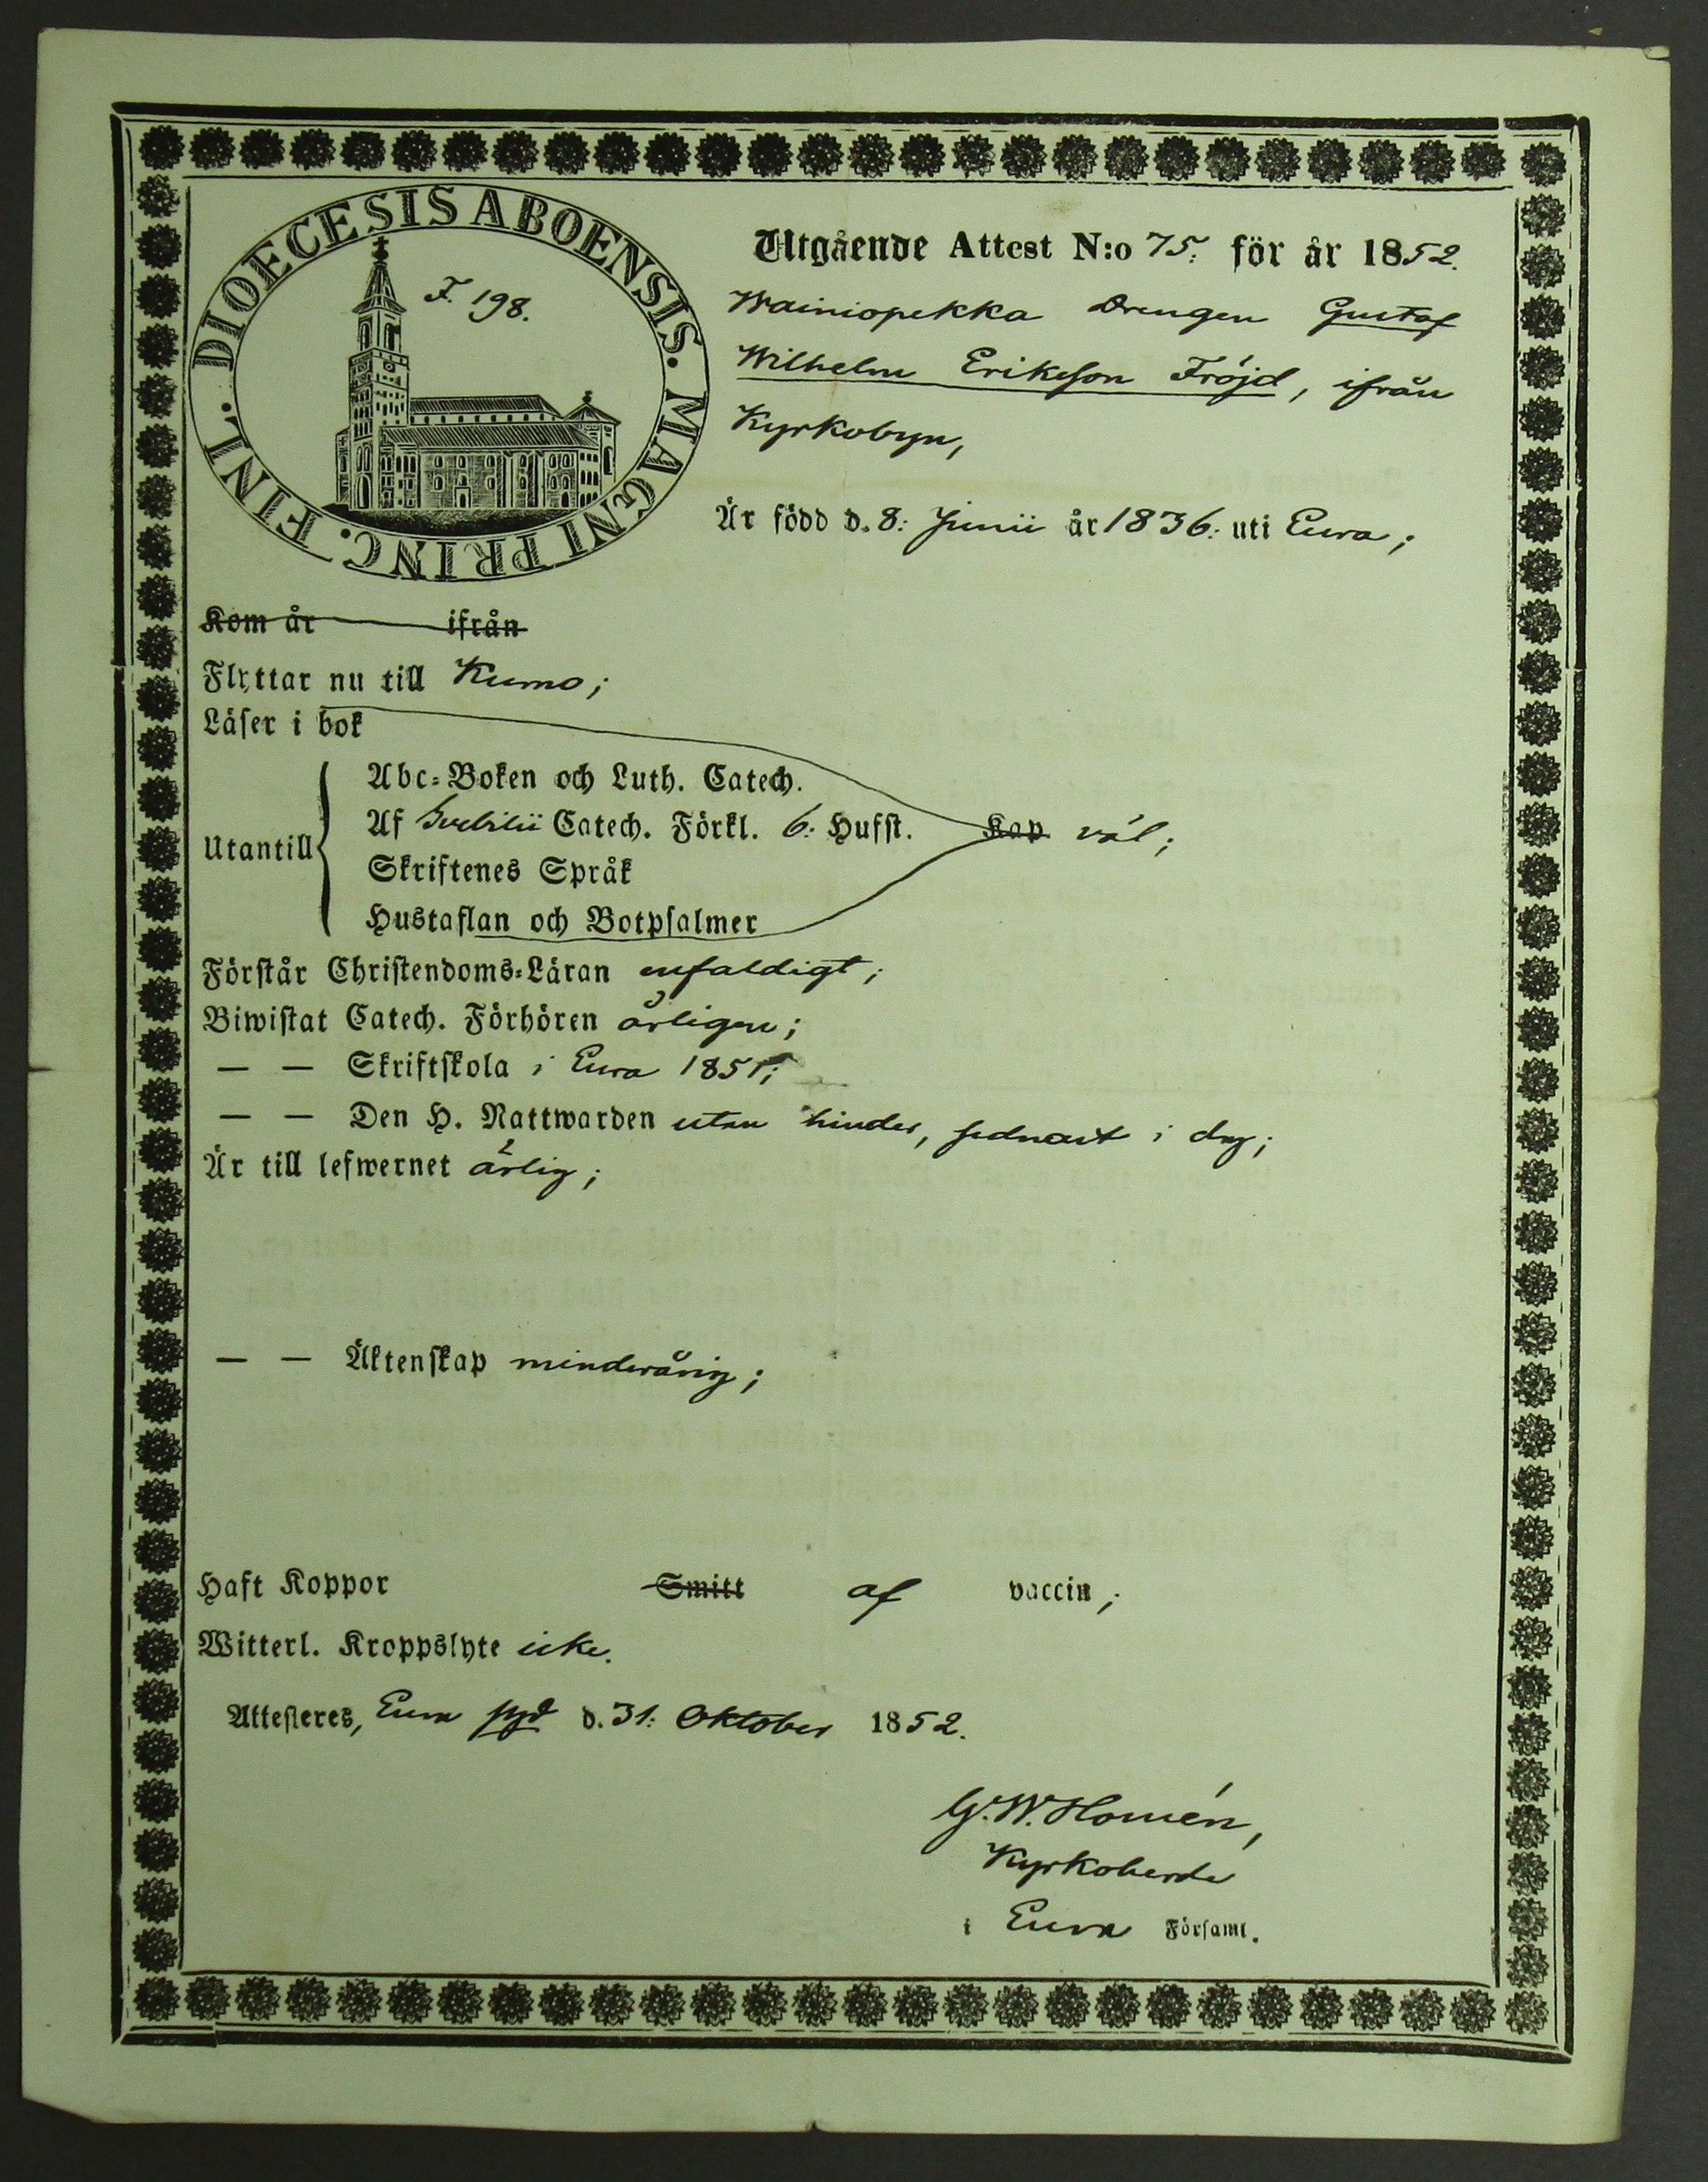 DIOECESIS ABOENSIS. MAGNI PRINC. FINL.
F. 198.
Utgående Attest N:o 75. för år 1852.
Wainiopekka Drengen Gustaf
Wilhelm Erikeson Fröjd, ifrån
Kyrkobyn,
Är född d. 8: Junii år 1836: uti Eura;
Kom år ifrån
Flyttar nu till Kumo;
Läser i bok
Abc-Boken och Luth. Catech.
Utantill Af Svebilii Catech. Förkl. 6: Hufst. Kap väl;
Skriftenes Språk
Hustaflan och Botpsalmer
Förstår Christendoms-Läran enfaldigt;
Biwistat Catech. Förhören årligen;
— — Skriftskola i Eura 1851;
— — Den H. Nattwarden utan hinder, sednast i dag;
Är till lefwernet ärlig;
— — Äktenskap minderårig;
Haft Koppor Smitt af vaccin;
Witterl. Kroppslyte icke.
Attesteres, Eura d. 31: Oktober 1852.
G. W. Homén,
Kyrkoherde
i Eura Församl.